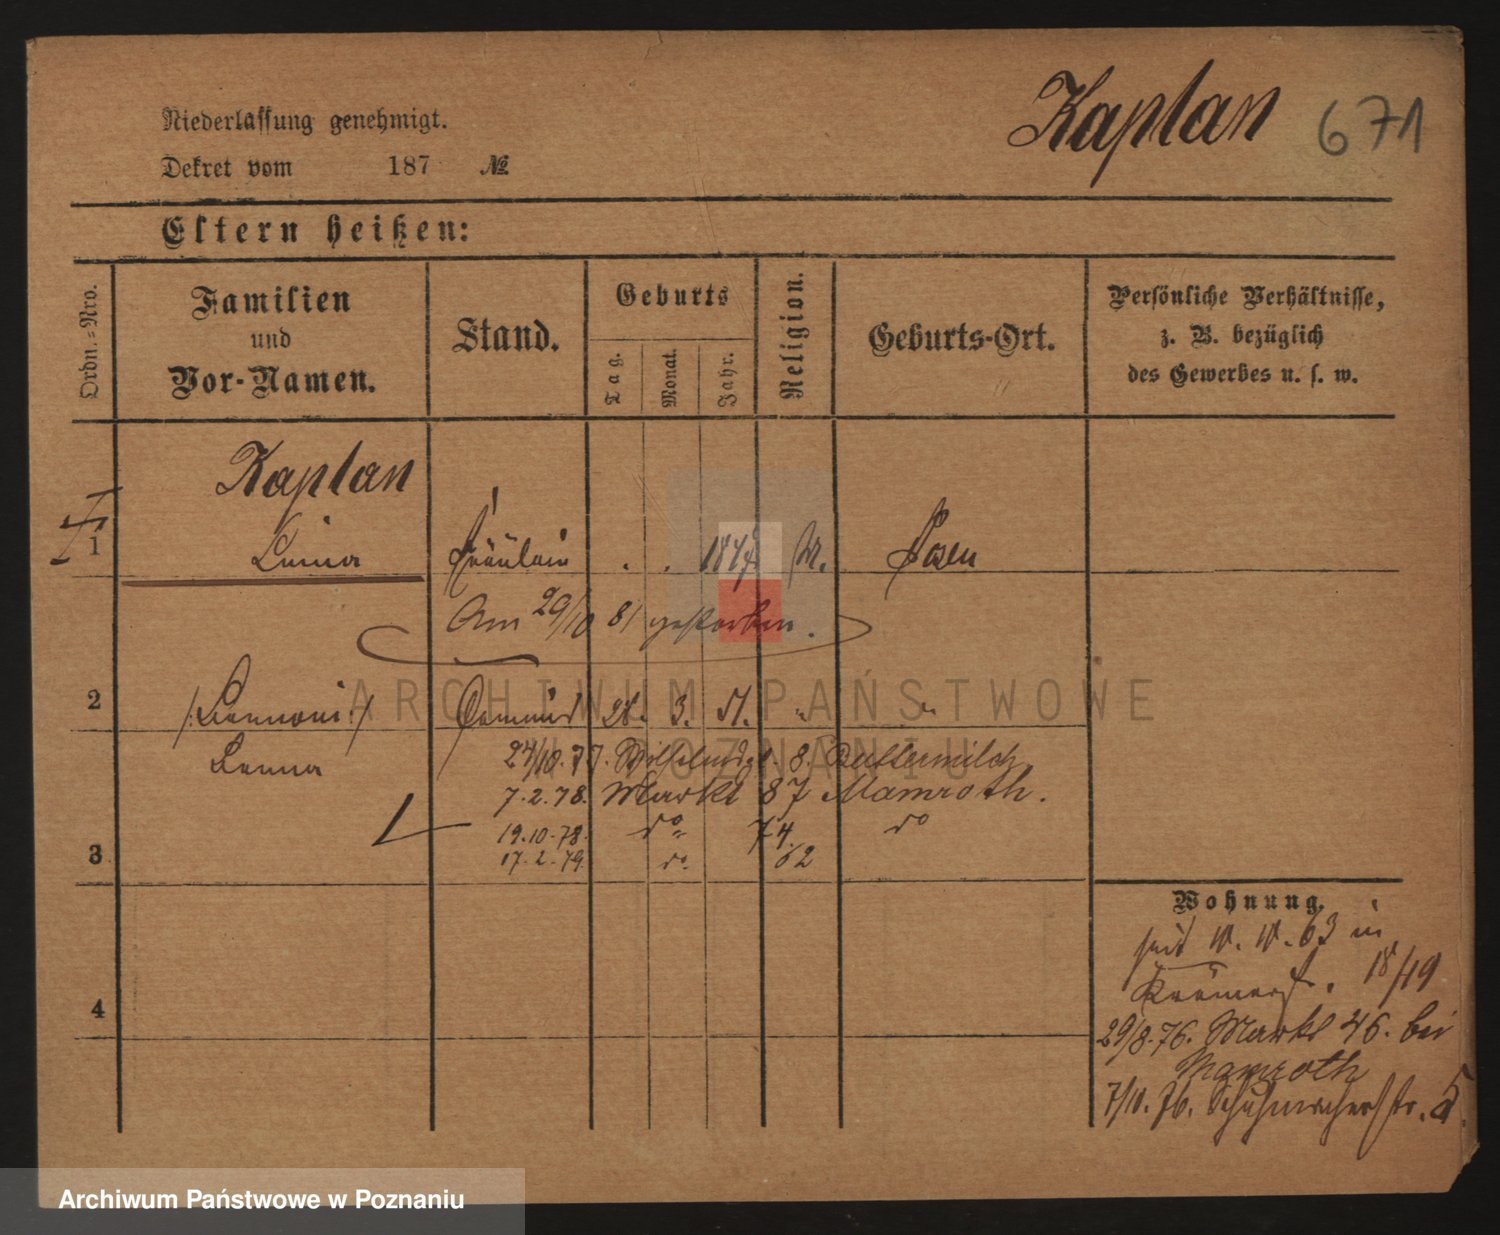 Kaplan 671
Niederlassung genehmigt.
Dekret vom 187 №
Eltern heißen:
Ordn.-Nro.
Familien
und
Vor-Namen.
Stand.
Geburts
Tag.
Monat.
Jahr.
Religion.
Geburts-Ort.
Persönliche Verhältnisse,
z. B. bezüglich
des Gewerbes u. s. w.
Kaplan
1 Fräulein . . 184 M. Posen
Am 29/10 81 gestorben.
2 28. 3. 51. " "
24/10. 77. 8. Buttermilch
7. 2. 78. Markt 87 Mamroth.
19. 10. 78. do 74. do
3 17. 2. 79. do 62
Wohnung.
seit 10. 10. 63 in
Krämerstr. 18/19
4
29/8. 76. Markt 46. bei
Mamroth
7/10. 76. Schuhmacherstr. 5.
ARCHIWUM PAŃSTWOWE
W POZNANIU
Archiwum Państwowe w Poznaniu